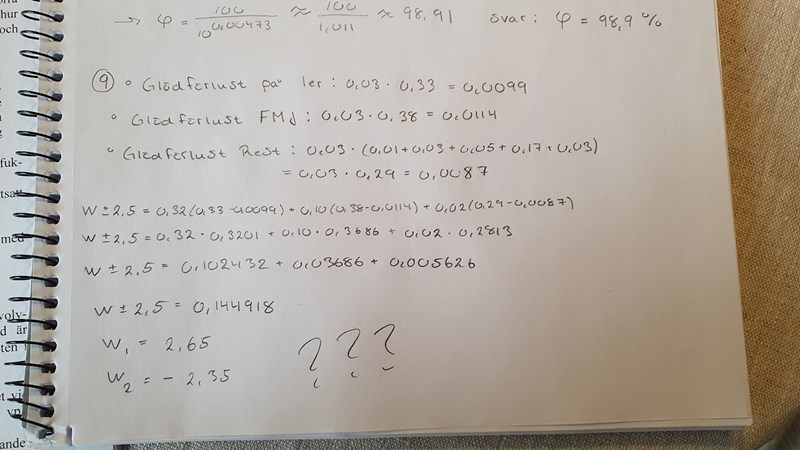 hur
och
→ φ = 100 / 10^0,00473 ≈ 100 / 1,011 ≈ 98,91 svar: φ = 98,9 %
⑨ ° Glödförlust på ler: 0,03 · 0,33 = 0,0099
° Glödförlust FMJ: 0,03 · 0,38 = 0,0114
° Glödförlust Rest: 0,03 · (0,01+0,03+0,05+0,17+0,03)
= 0,03 · 0,29 = 0,0087
fuk-
W ± 2,5 = 0,32(0,33-0,0099) + 0,10(0,38-0,0114) + 0,02(0,29-0,0087)
W ± 2,5 = 0,32 · 0,3201 + 0,10 · 0,3686 + 0,02 · 0,2813
med
W ± 2,5 = 0,102432 + 0,03686 + 0,005626
W ± 2,5 = 0,144918
volv-
d är
W₁ = 2,65
ten
W₂ = - 2,35
???
ande